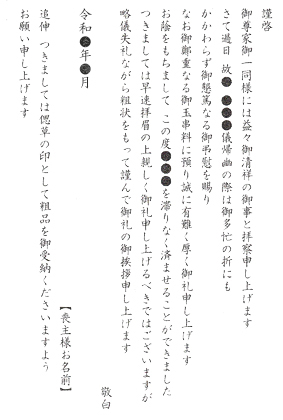 謹啓
御尊家御一同様には益々御清祥の御事と拝察申し上げます
さて過日 故● ●●●●儀帰幽の際は御多忙の折にも
かかわらず御懇篤なる御弔慰を賜り
なお御鄭重なる御玉串料に預り誠に有難く厚く御礼申し上げます
お陰をもちまして この度●●●を滞りなく済ませることができました
つきましては早速拝眉の上親しく御礼申し上げるべきではございますが
略儀失礼ながら粗状をもって謹んで御礼の御挨拶申し上げます
敬白
令和●年●月
【喪主様お名前】
追伸 つきましては偲草の印として粗品を御受納くださいますよう
お願い申し上げます